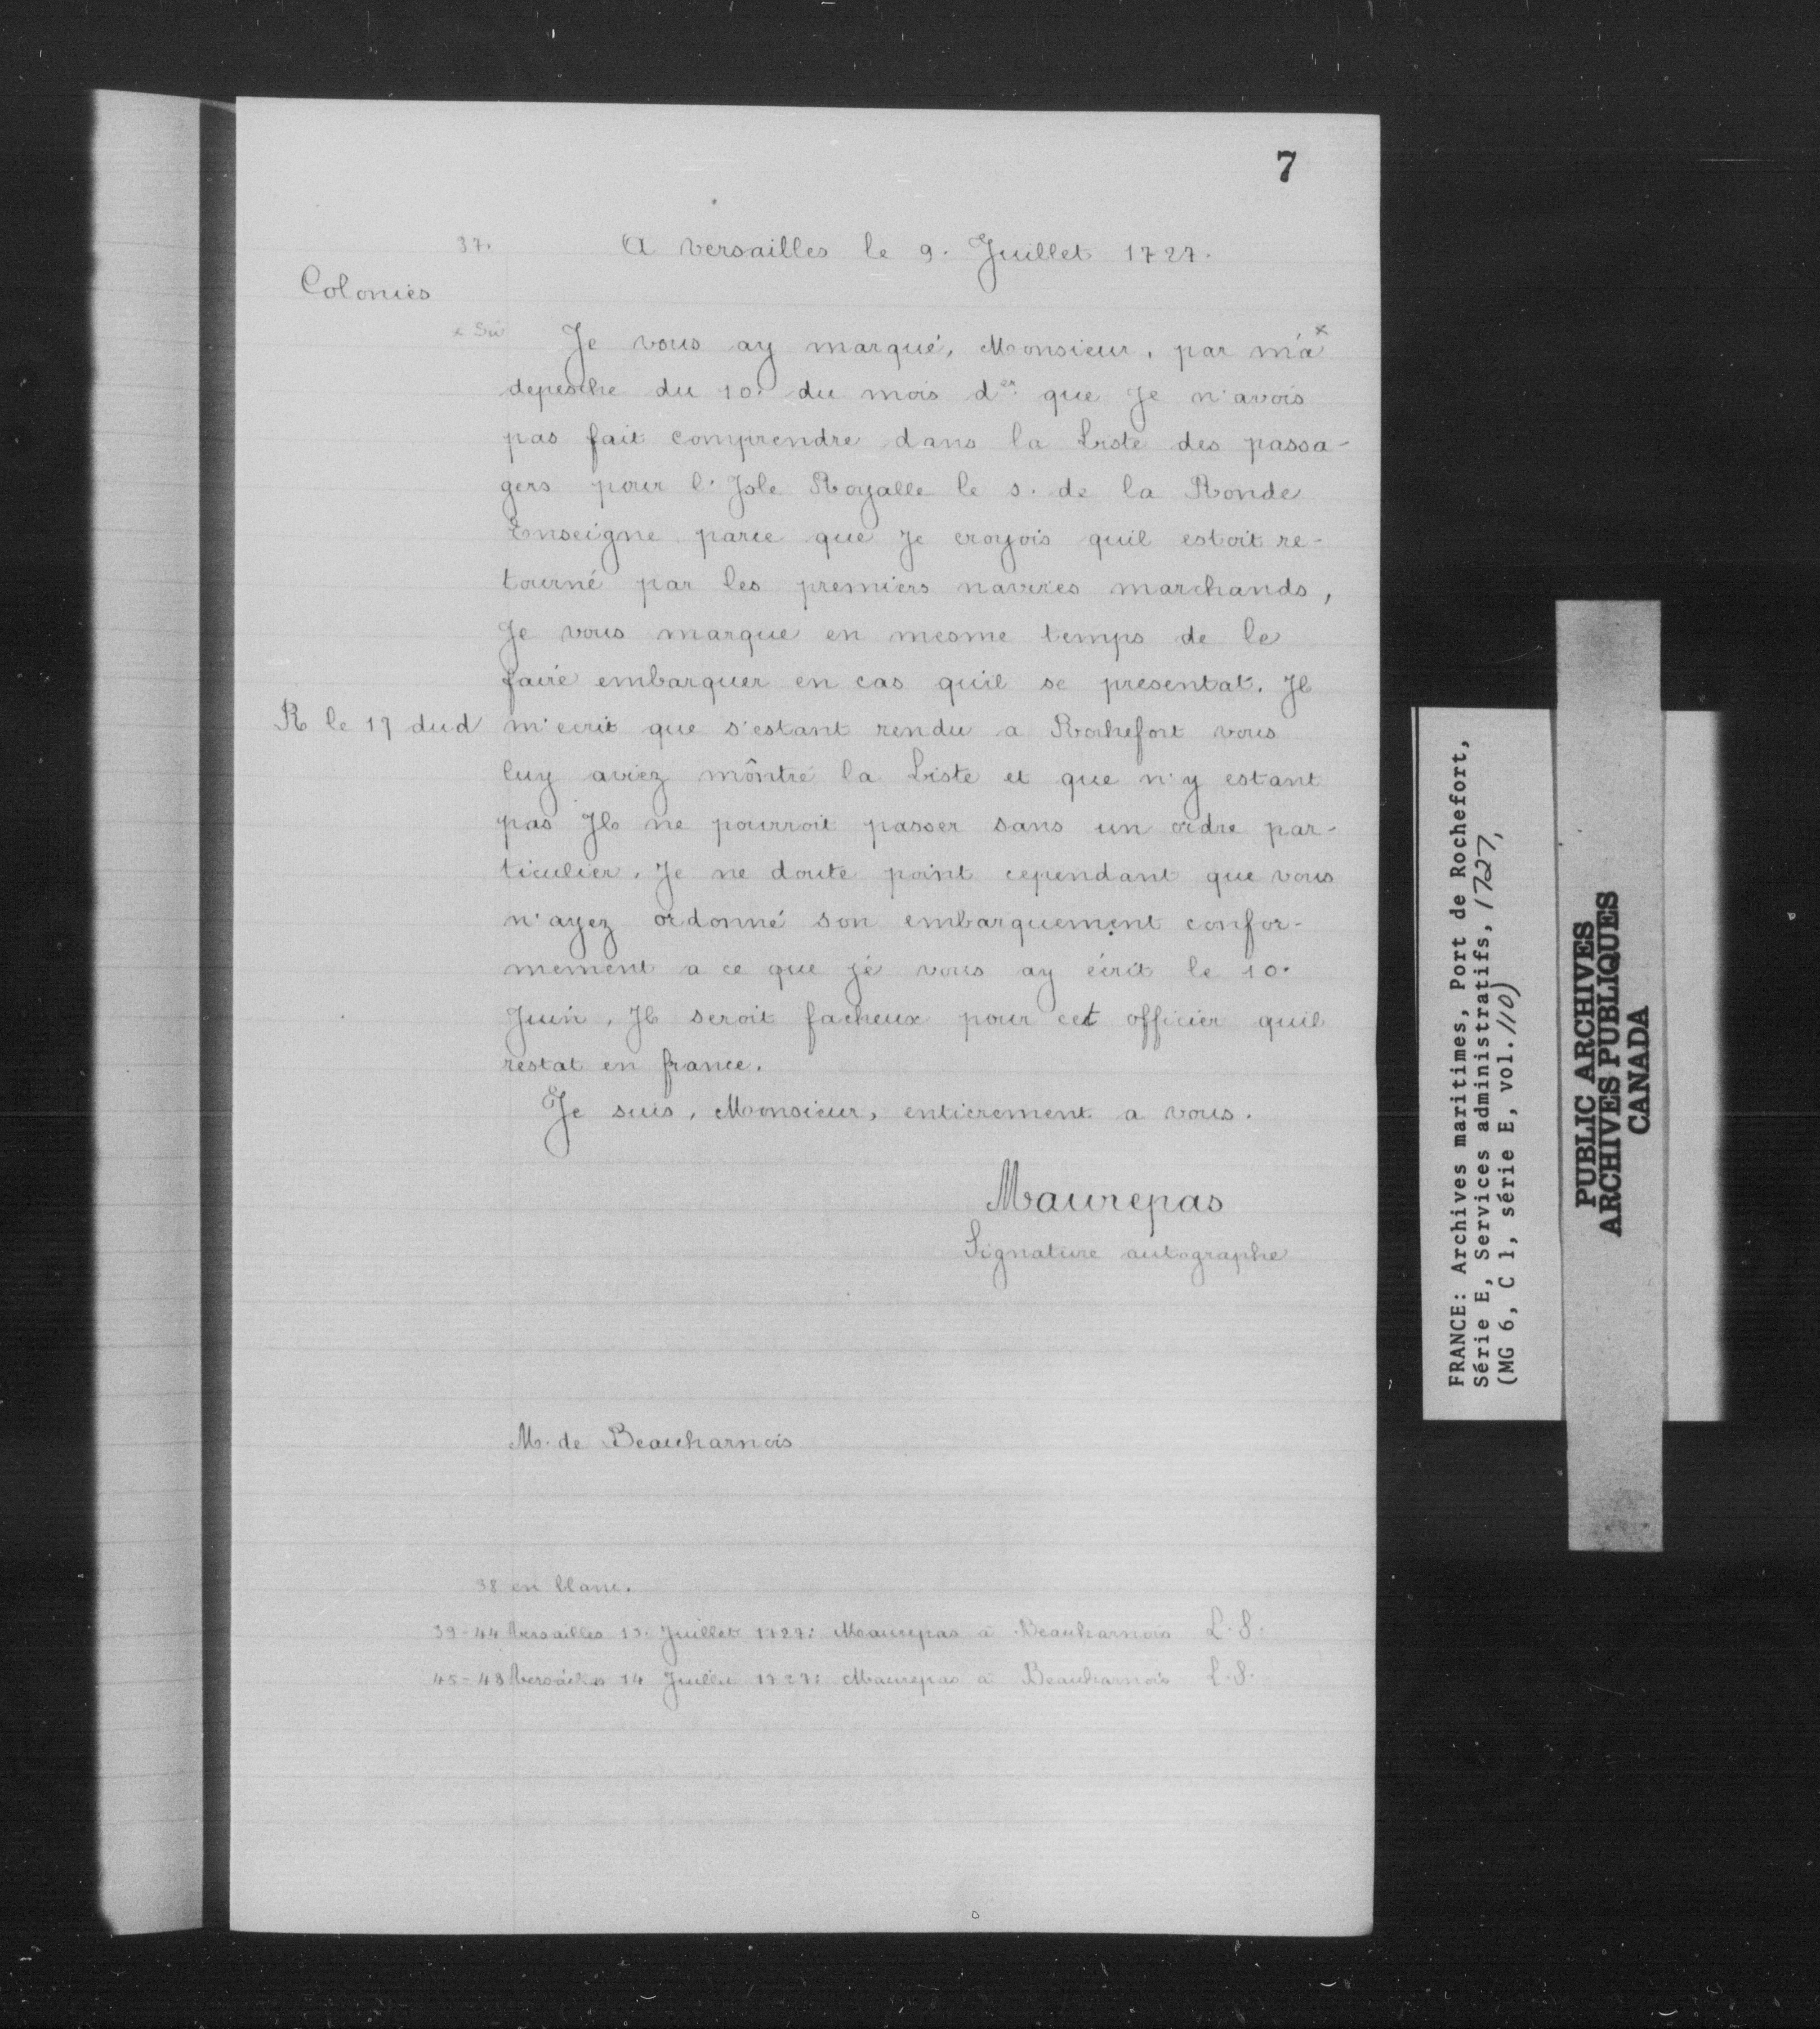 7
37. A Versailles le 9. Juillet 1727.
Colonies
x Sic Je vous ay marqué, Monsieur, par m'a x
depesche du 10. du mois d.er que Je n'avois
pas fait comprendre dans la Liste des passa-
gers pour l'Isle Royalle le s. de la Ronde
Enseigne parce que Je croyois quil estoit re-
tourné par les premiers navires marchands,
Je vous marque en mesme temps de le
faire embarquer en cas quil se presentat. Il
R le 17 dud m'ecrit que s'estant rendu a Rochefort vous
luy aviez môntré la Liste et que n'y estant
pas Il ne pourroit passer sans un ordre par-
ticulier. Je ne doute point cependant que vous
n'ayez ordonné son embarquement confor-
mement a ce que je vous ay écrit le 10.
Juin. Il seroit facheux pour cet officier quil
restat en france.
Je suis, Monsieur, entierement a vous.
Maurepas
Signature autographe
M. de Beauharnois
38 en blanc.
39-44 Versailles 13. Juillet 1727: Maurepas à Beauharnois L.S.
45-48 Versailles 14 Juillet 1727: Maurepas à Beauharnois L.S.
FRANCE: Archives maritimes, Port de Rochefort,
Série E, Services administratifs, 1727,
(MG 6, C 1, série E, vol. 110)
PUBLIC ARCHIVES
ARCHIVES PUBLIQUES
CANADA